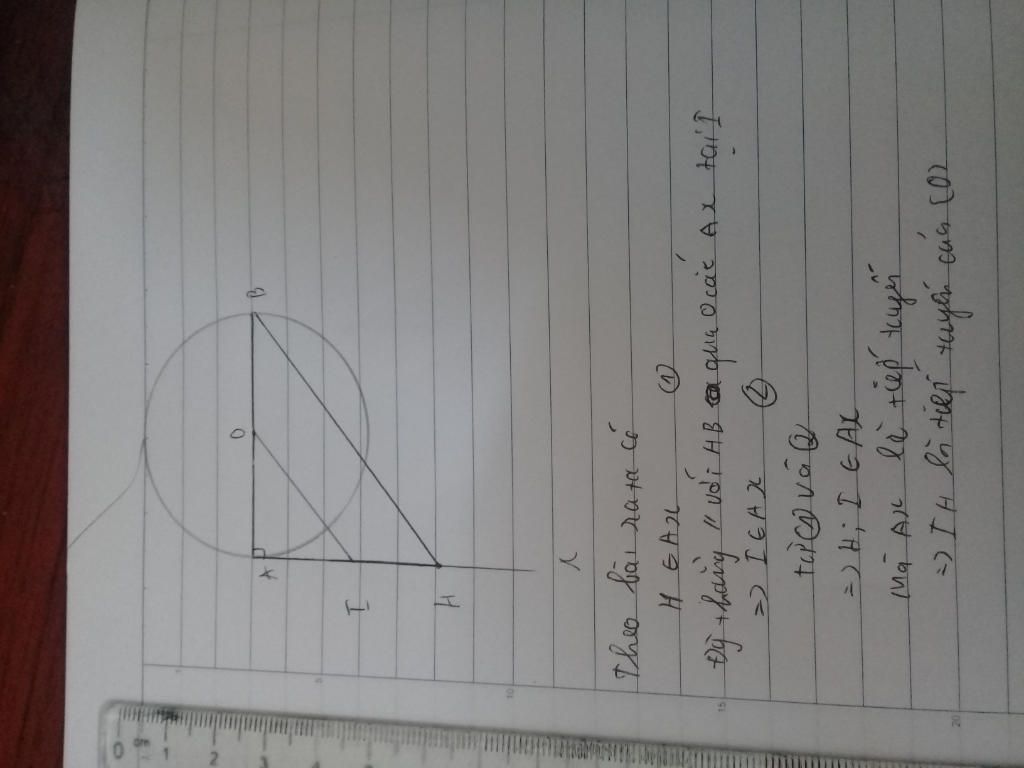 B
O
A
I
H
x
Theo bài ra ta có
H ∈ Ax ①
Đường thẳng // với HB qua O cắt Ax tại I
=> I ∈ Ax ②
từ ① và ②
=> H; I ∈ Ax
Mà Ax là tiếp tuyến
=> IH là tiếp tuyến của (O)
0 cm
1
2
3
4
5
1
5
10
15
20